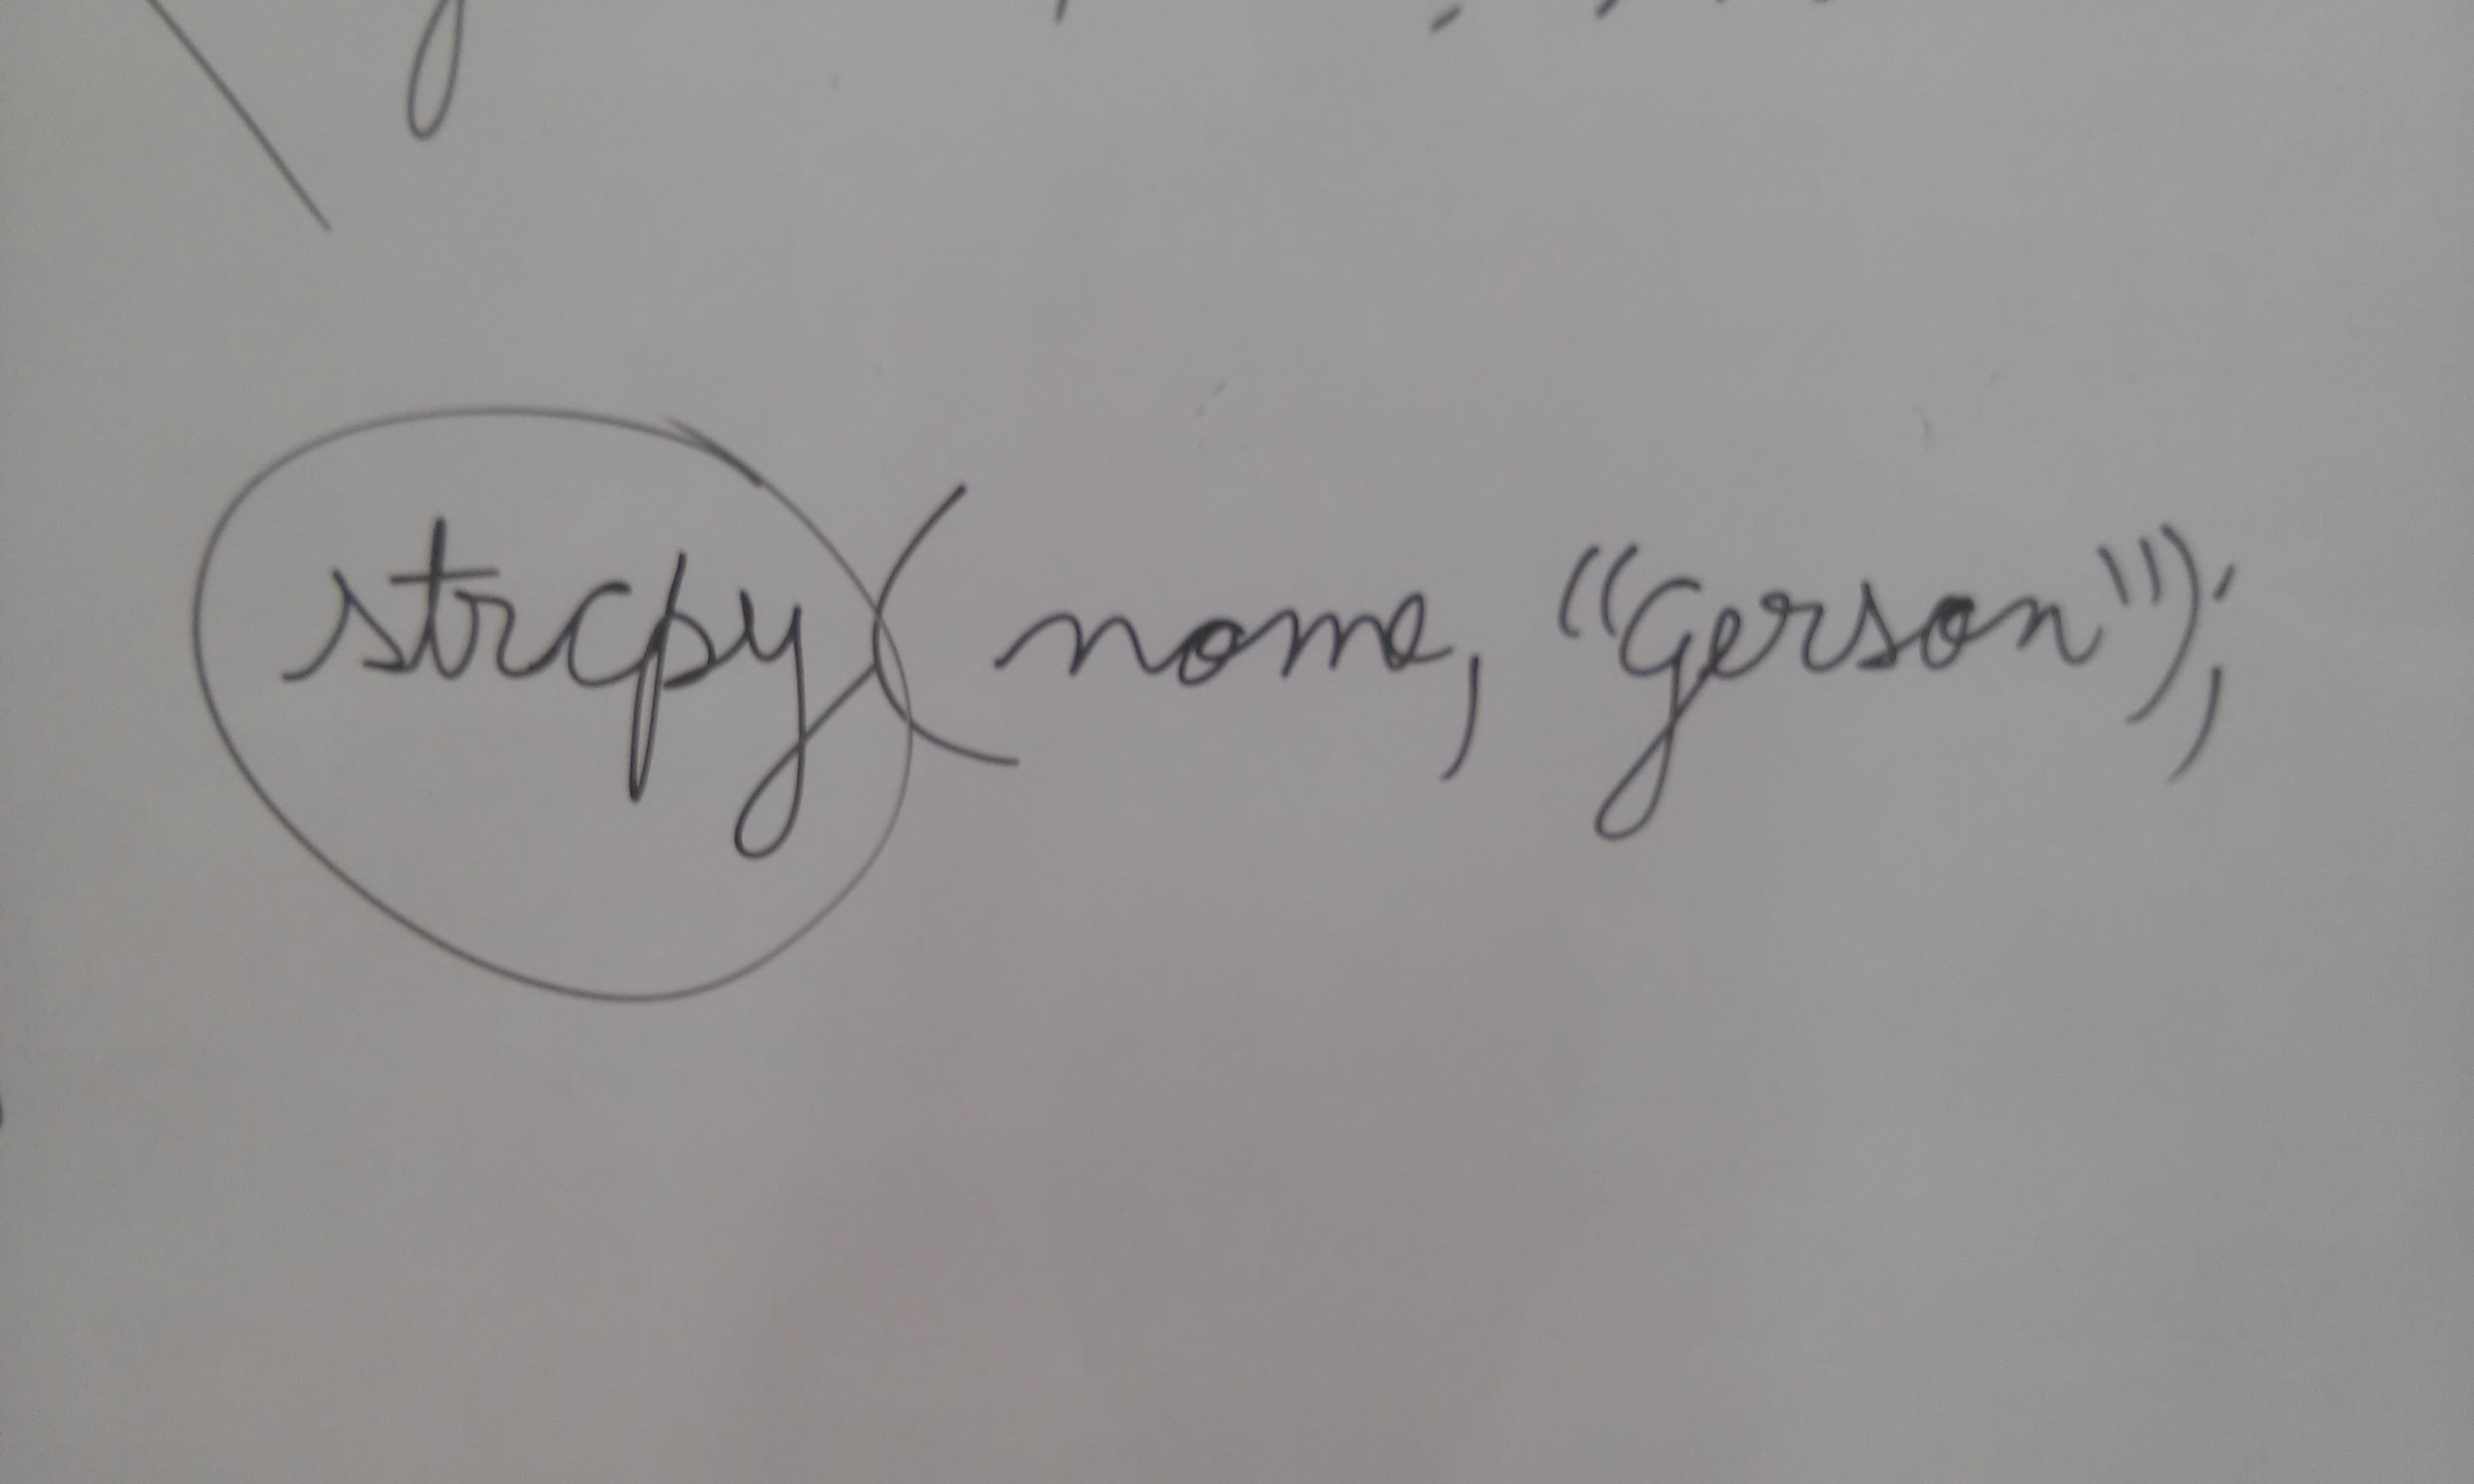 strcpy( nome, "Gerson");